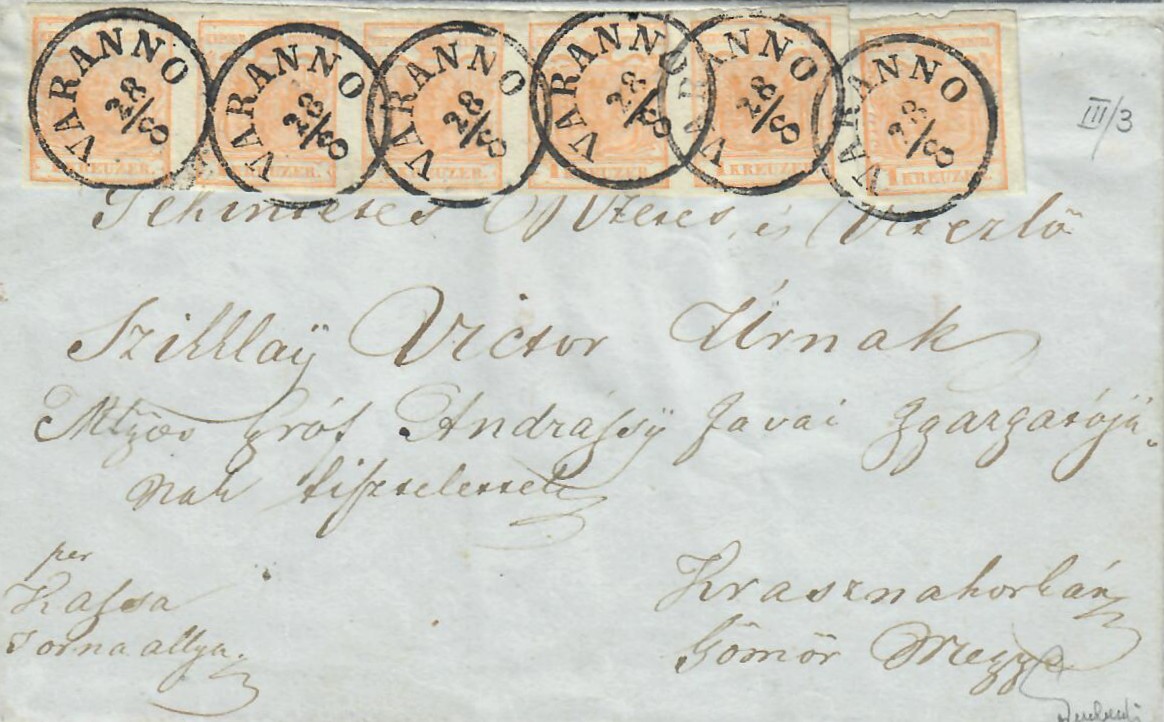 VARANNO 28/8 VARANNO 28/8 VARANNO 28/8 VARANNO 28/8 VARANNO 28/8 VARANNO 28/8
KREUZER. KREUZER. KREUZER. 1 KREUZER. 1 KREUZER. 1 KREUZER.
III/3
Tekintetes Nzetes és Vitezlő
Szilllaÿ Victor Úrnak
Gróf Andráſsÿ Javai Igazgatójá-
nak tiſztelettel
per
Kaſsa
Tornaallya.
Krasznahorkán
Gömör Megye